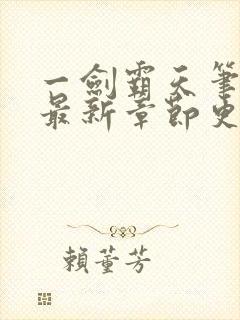 一劍霸天筆
最新章節史
賴董芳